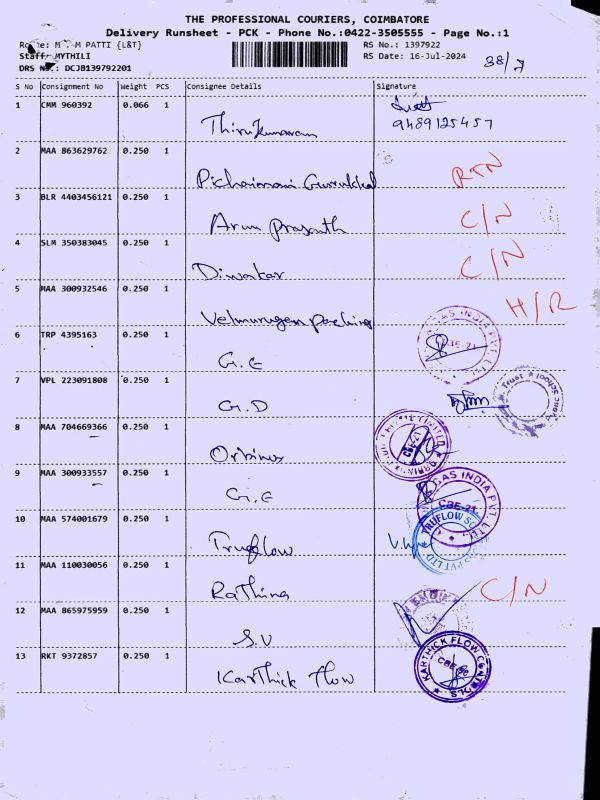 THE PROFESSIONAL COURIERS, COIMBATORE
Delivery Runsheet - PCK - Phone No.:0422-3505555 - Page No.:1
PATTI {L&T} RS No.: 1397922
Staff: MYTHILI RS Date: 16-Jul-2024 38/7
DRS No.: DCJB139792201
S No Consignment No Weight PCS Consignee Details Signature
1 CMM 960392 0.066 1 Thirukumaran 9489125457
2 MAA 863629762 0.250 1 Pichaimani Gurukkal RTN
3 BLR 4403456121 0.250 1 Arun Prasanth C/N
4 SLM 350383045 0.250 1 Diwakar C/N
5 MAA 300932546 0.250 1 Velmurugan packing H/R
6 TRP 4395163 0.250 1 G.E GAS INDIA PVT. LTD. CBE-21
7 VPL 223091808 0.250 1 G.D Trust School
8 MAA 704669366 0.250 1 Orbinox LIMITED CBE-21
9 MAA 300933557 0.250 1 G.E GAS INDIA PVT. LTD. CBE-21.
10 MAA 574001679 0.250 1 Truflow TRUFLOW PVT LTD
11 MAA 110030056 0.250 1 Rathina C/N
12 MAA 865975959 0.250 1 S.V
13 RKT 9372857 0.250 1 Karthick Flow KARTHICK FLOW CONTROLS